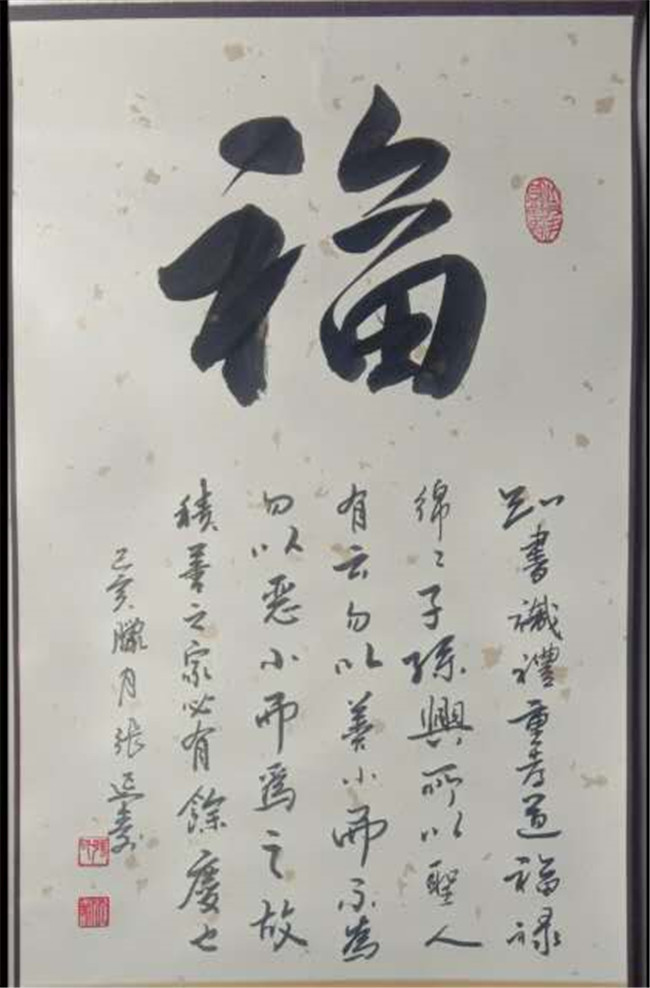 福
知書識禮重孝道福禄
綿々子孫興所以聖人
有云勿以善小而不為
勿以惡小而爲之故
積善之家必有餘慶也
己亥臘月張延春